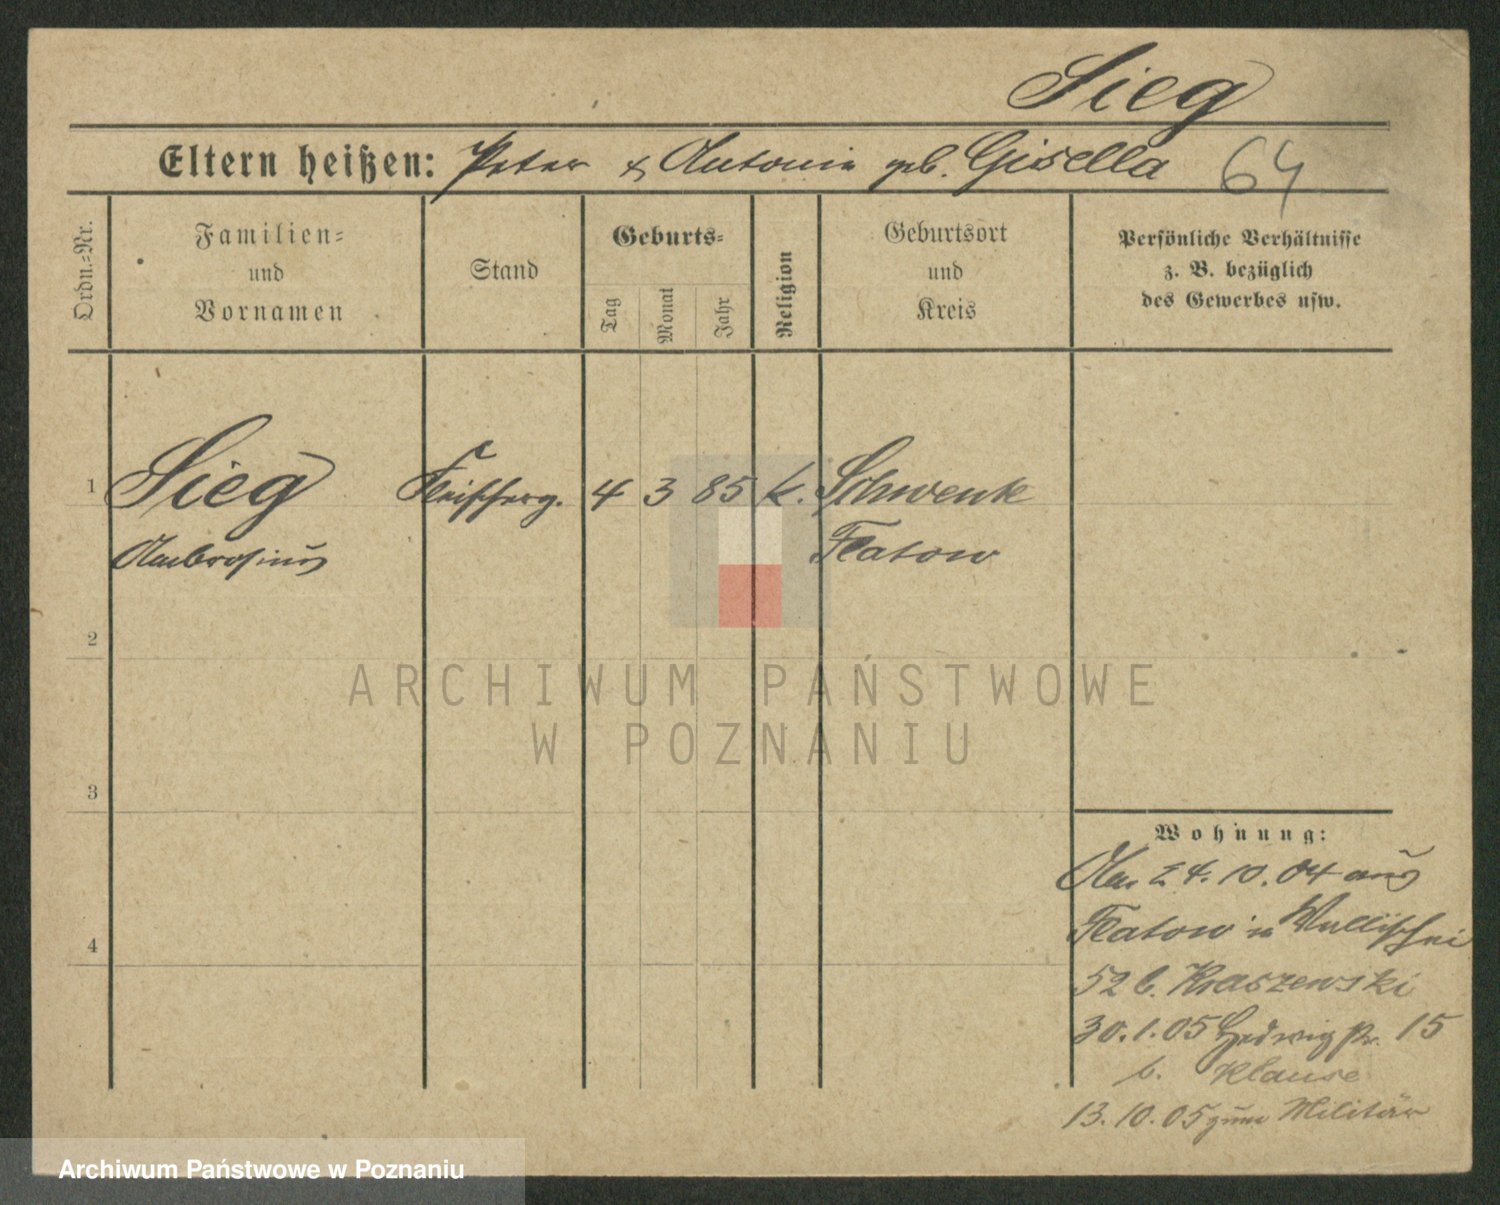 Sieg
Eltern heißen: Peter & Antonie geb. Gisella 64
Ordn.=Nr.
Familien=
und
Vornamen
Stand
Geburts=
Tag
Monat
Jahr
Religion
Geburtsort
und
Kreis
Persönliche Verhältnisse
z. B. bezüglich
des Gewerbes usw.
1 Sieg Fleischerg. 4 3 85 k. Schwente
Ambrosius Flatow
2
3
4
Wohnung:
Am 24.10.04 aus
Flatow in Wallischei
52 b. Kraszewski
30.1.05 Hedwigstr. 15
b. Klause
13.10.05 zum Militär
ARCHIWUM PAŃSTWOWE
W POZNANIU
Archiwum Państwowe w Poznaniu